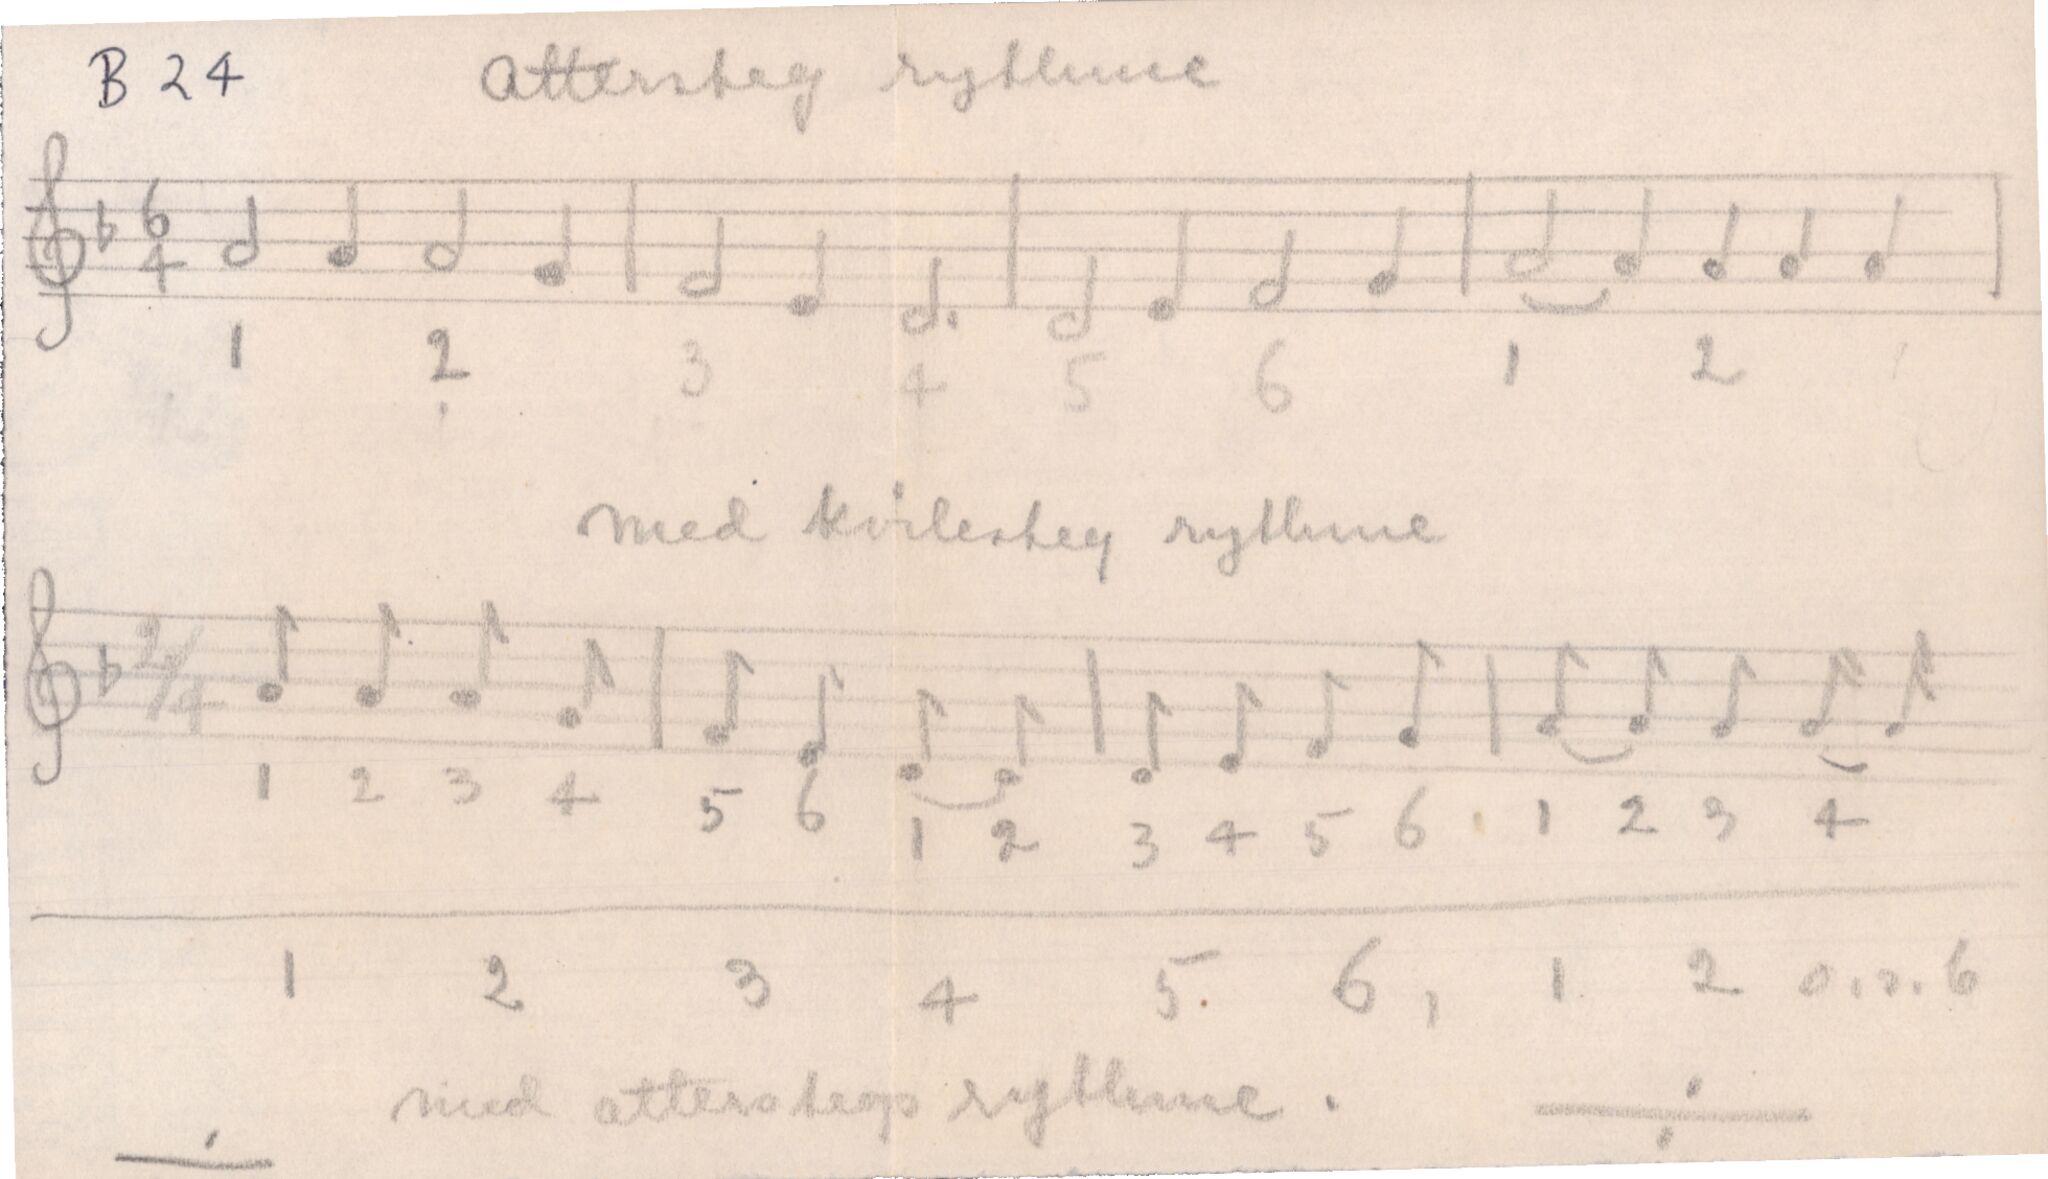 B 24 attersteg rythme
6
4
1 2 3 4 5 6 1 2
med kvilesteg rythme
2/4
1 2 3 4 5 6 1 2 3 4 5 6 1 2 3 4
1 2 3 4 5 6, 1 2 o.s. 6
med atterstegs rythme.